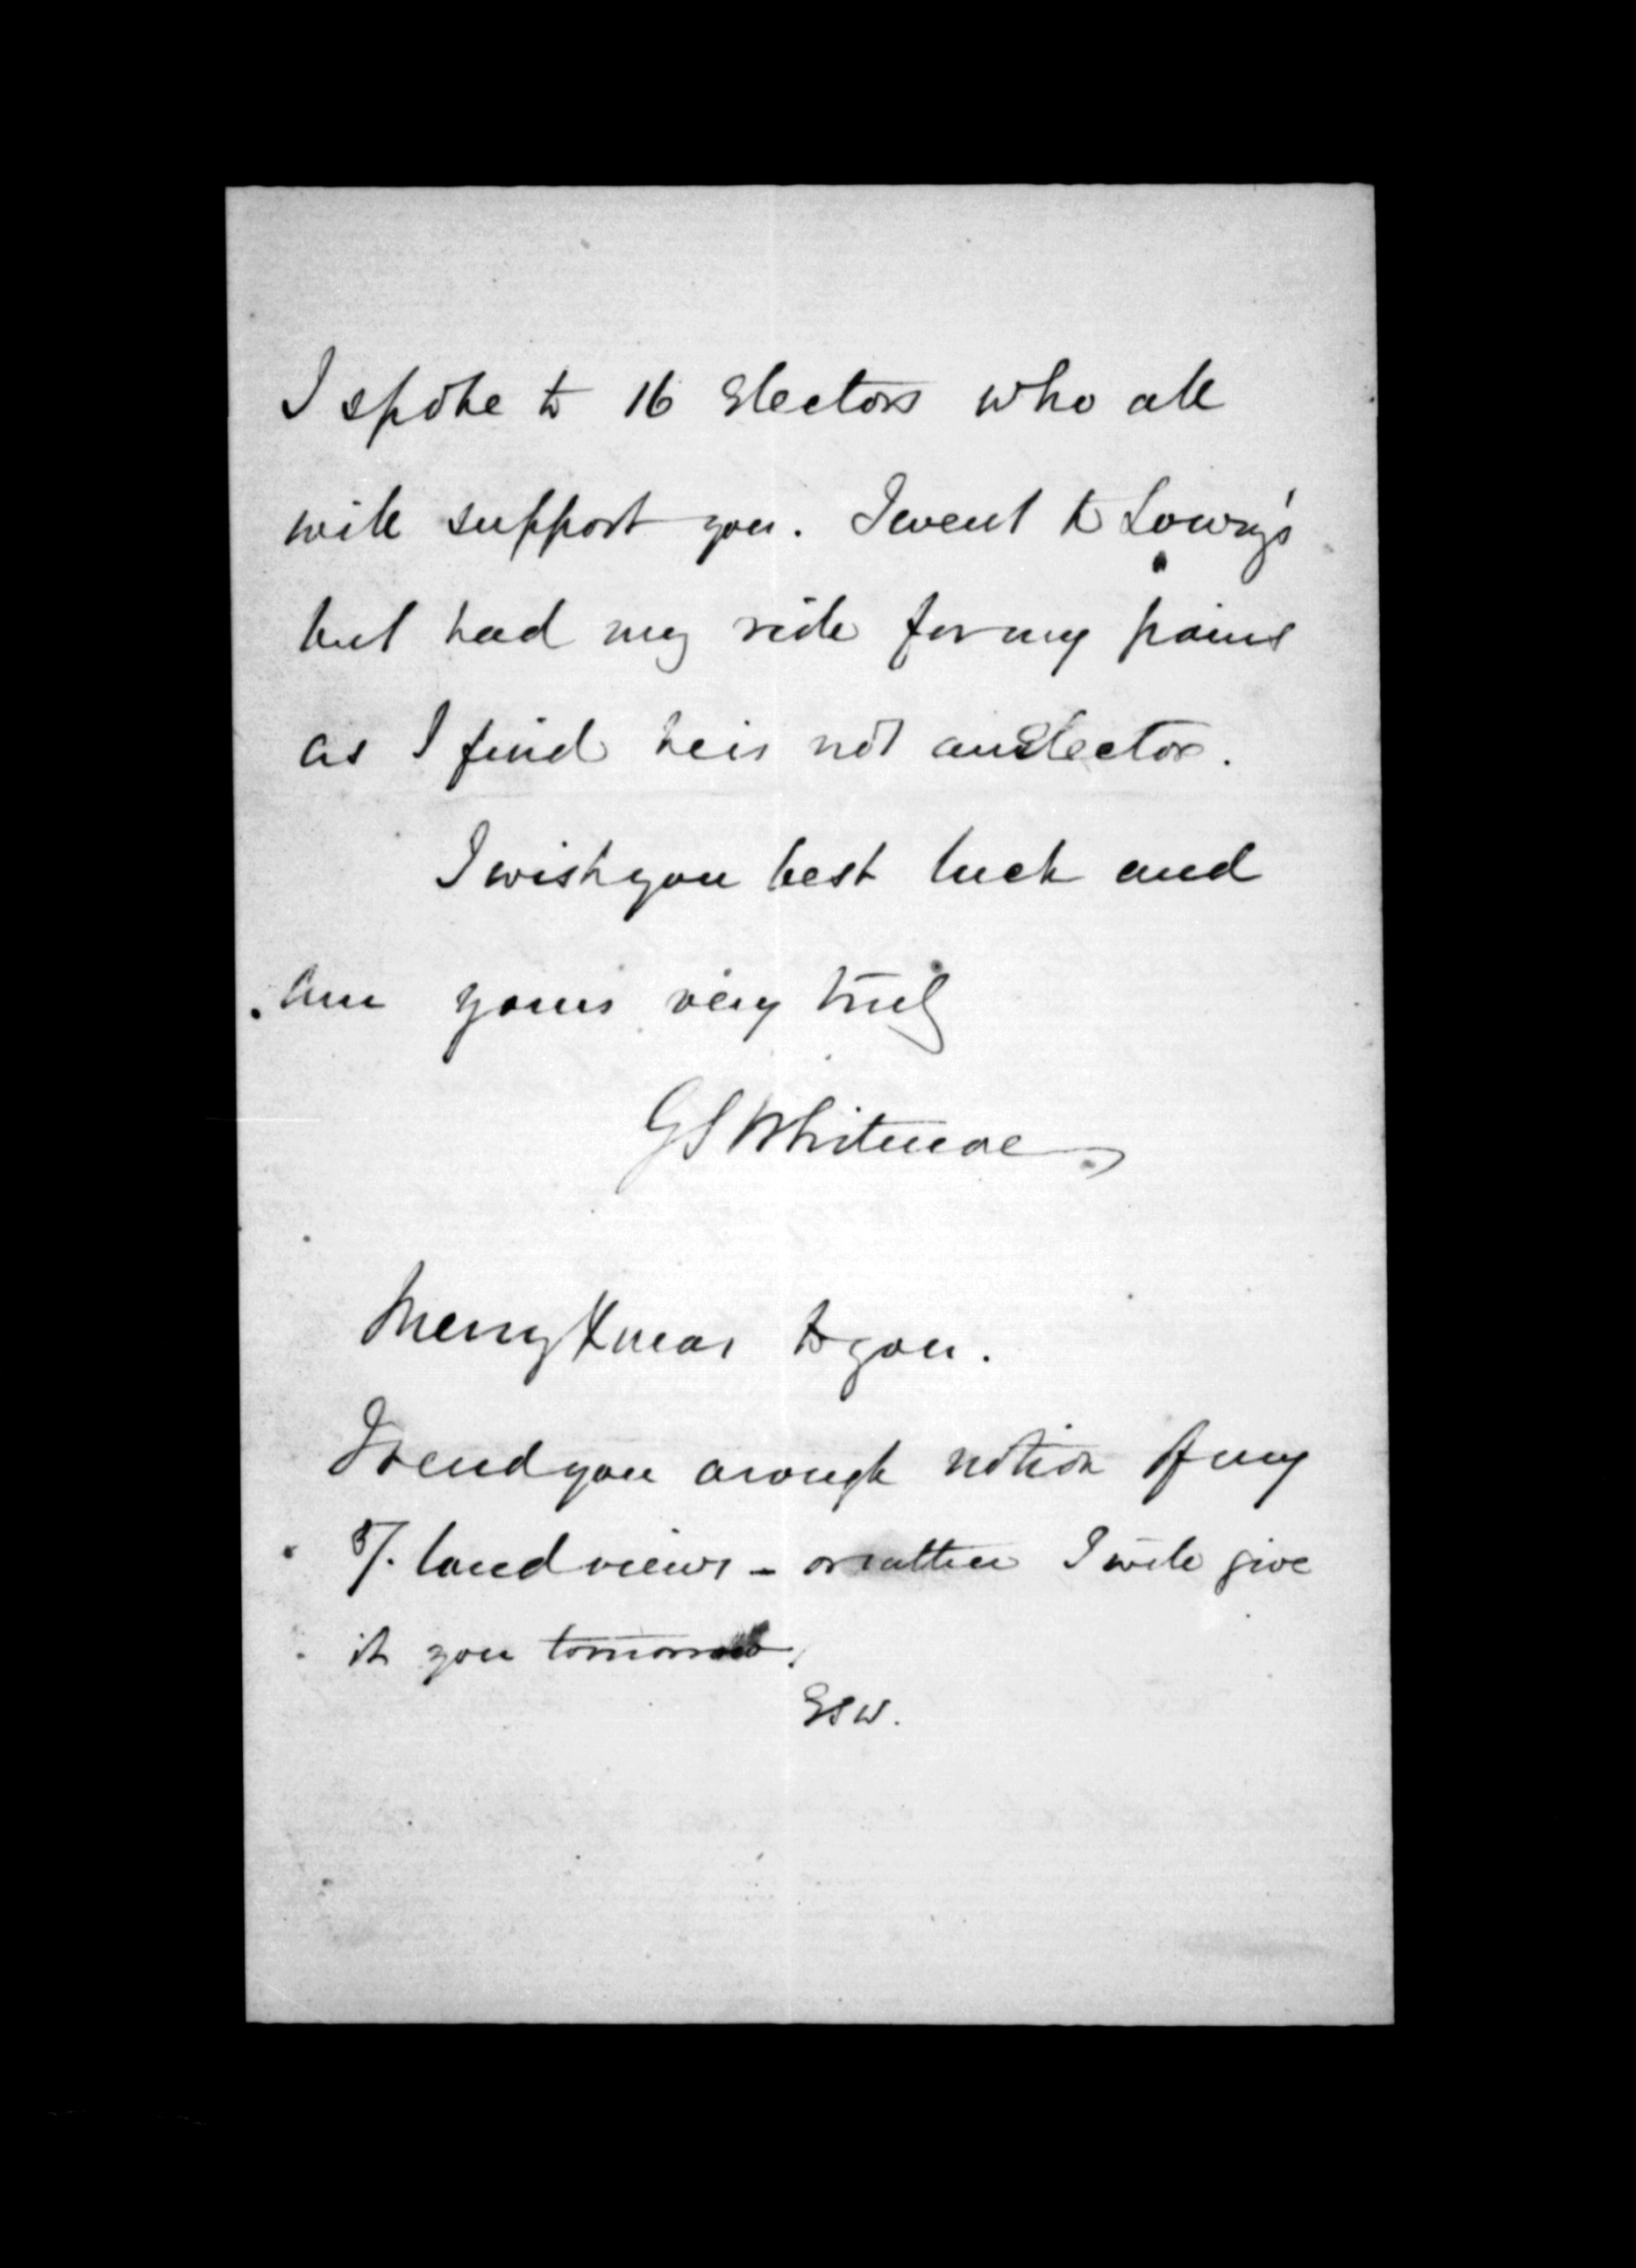 I spoke to 16 Electors who all
will support you. I went to Lowry's
but had my ride for my pains
as I find he is not an Elector.
I wish you best luck and
am yours very truly
GS Whitmore
Merry Xmas to you.
I send you a rough notion of my
5/. land views - or rather I will give
it you tomorrow.
GSW.